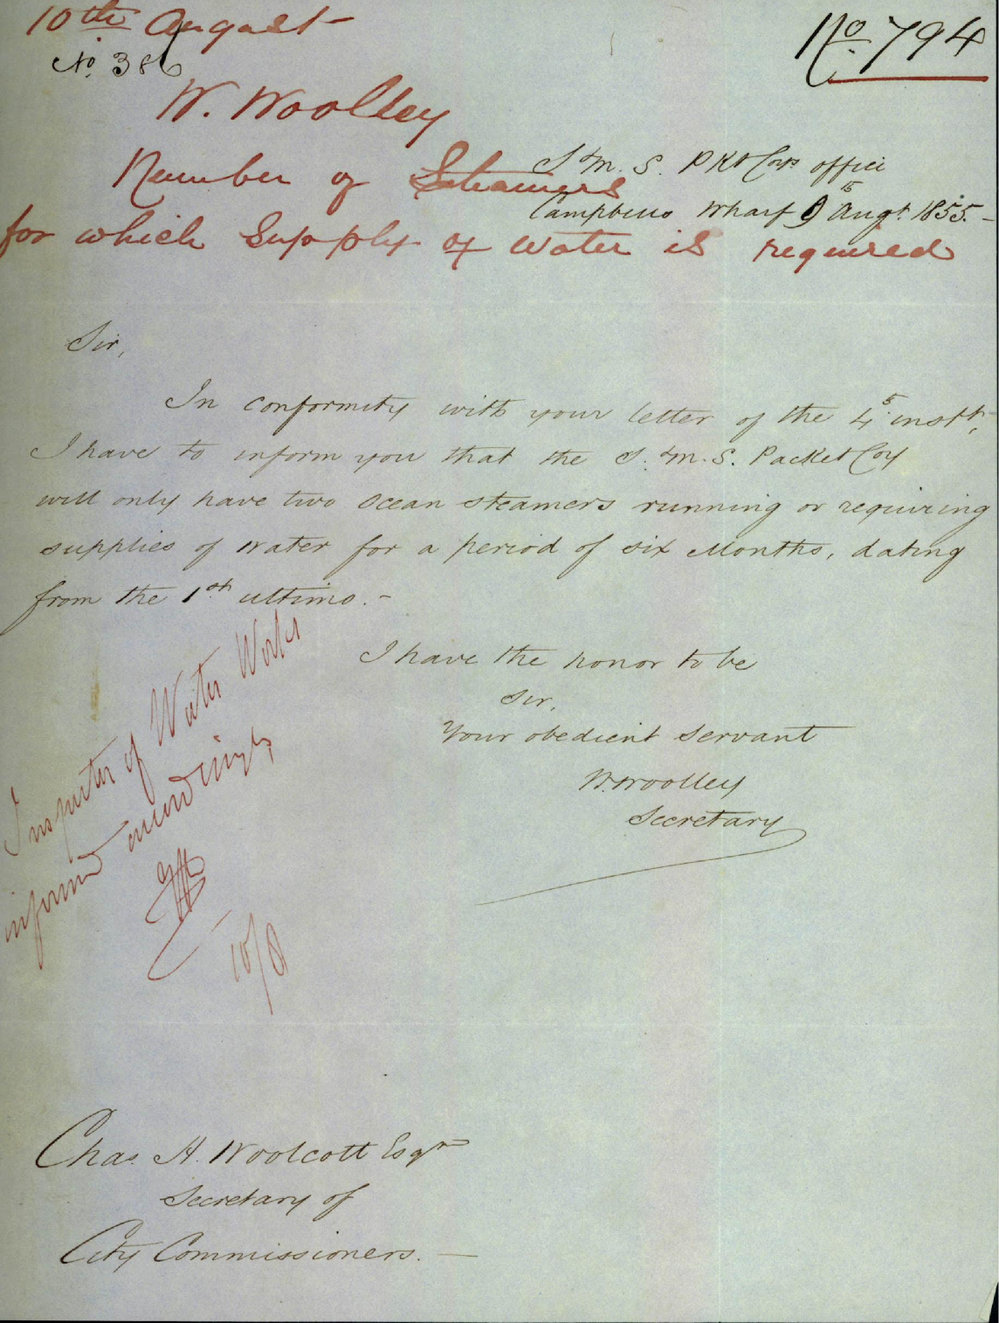 10th August
No. 386
No. 794
W. Woolley
Number of Steamers
for which Supply of Water is required
S. N. S. Pkt Coys office
Campbells Wharf 9th Augt. 1855.
Sir,
In conformity with your letter of the 4th instt,
I have to inform you that the S. N. S. Packet Coy
will only have two ocean steamers running or requiring
supplies of water for a period of six Months, dating
from the 1st ultimo.-
I have the honor to be
Sir,
Your obedient Servant
W Woolley
Secretary
Inspector of Water Works
informed accordingly
10/8
Chas. H. Woolcott Esqr
Secretary of
City Commissioners.